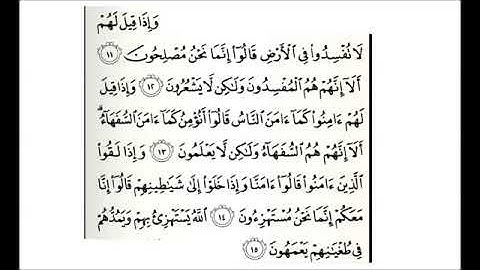 وَإِذَا قِيلَ لَهُمْ
لَا تُفْسِدُوا۟ فِى ٱلْأَرْضِ قَالُوٓا۟ إِنَّمَا نَحْنُ مُصْلِحُونَ ١١
أَلَآ إِنَّهُمْ هُمُ ٱلْمُفْسِدُونَ وَلَٰكِن لَّا يَشْعُرُونَ ١٢ وَإِذَا قِيلَ
لَهُمْ ءَامِنُوا۟ كَمَآ ءَامَنَ ٱلنَّاسُ قَالُوٓا۟ أَنُؤْمِنُ كَمَآ ءَامَنَ ٱلسُّفَهَآءُ ۗ
أَلَآ إِنَّهُمْ هُمُ ٱلسُّفَهَآءُ وَلَٰكِن لَّا يَعْلَمُونَ ١٣ وَإِذَا لَقُوا۟
ٱلَّذِينَ ءَامَنُوا۟ قَالُوٓا۟ ءَامَنَّا وَإِذَا خَلَوْا۟ إِلَىٰ شَيَٰطِينِهِمْ قَالُوٓا۟ إِنَّا
مَعَكُمْ إِنَّمَا نَحْنُ مُسْتَهْزِءُونَ ١٤ ٱللَّهُ يَسْتَهْزِئُ بِهِمْ وَيَمُدُّهُمْ
فِى طُغْيَٰنِهِمْ يَعْمَهُونَ ١٥